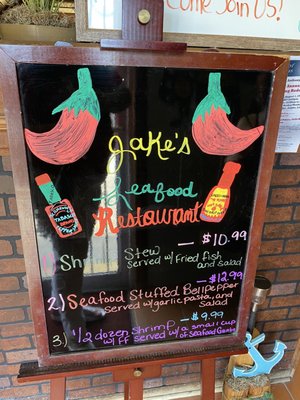 Come Join US!
Jake's
Seafood
Restaurant
TABASCO
- $10.99
1) Shrimp Stew
served w/ Fried fish
and salad
- $12.99
2) Seafood Stuffed Bellpepper
served w/ garlic pasta, and
salad
- $9.99
3) 1/2 dozen Shrimp w/ a small cup
w/ FF served w/ of Seafood Gumbo